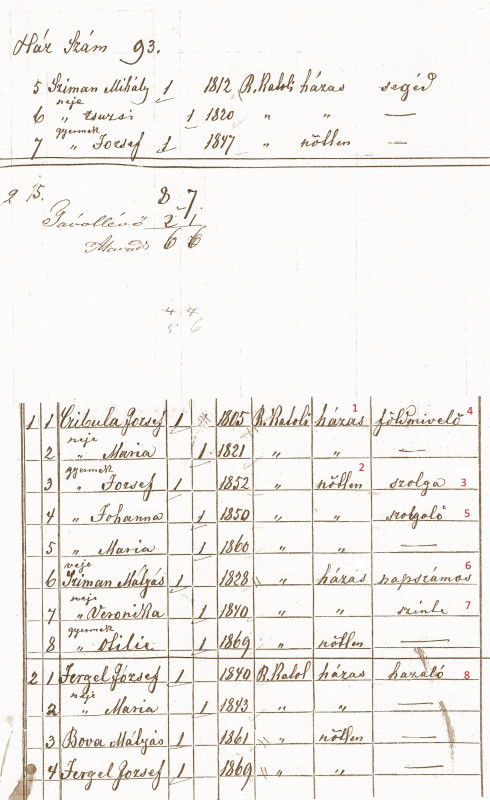 Ház Szám 93.
5 Sziman Mihály 1 1812 R. Katoli házas segéd
neje
6 " Zsuzsi 1 1820 " " —
gyermek
7 " Jozsef 1 1847 " nőtlen —
2 15. 8 7
Távollévő 2 1
Marad 6 6
4 4
5 6
1 1 Czibula Jozsef 1 1805 R. Katoli házas 1 földmivelő 4
neje
2 " Maria 1 1821 " " —
gyermek
3 " Jozsef 1 1852 " nőtlen 2 szolga 3
4 " Johanna 1 1850 " " szolgoló 5
5 " Maria 1 1860 " " —
veje
6 Sziman Mátyás 1 1828 " házas napszámos 6
neje
7 " Veronika 1 1840 " " szinte 7
gyermek
8 " Otilie 1 1869 " nőtlen —
2 1 Fergel József 1 1840 R. Katol házas hazaló 8
neje
2 " Maria 1 1843 " " —
3 Bova Mátyás 1 1861 " nőtlen —
4 Fergel Jozsef 1 1869 " " —